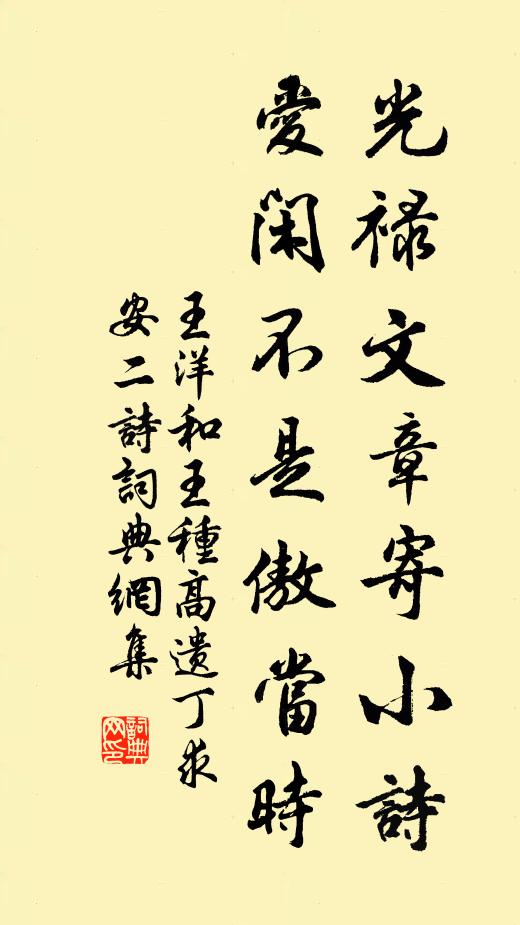 光禄文章寄小詩
愛閑不是傲當時
王洋和王種高遗丁求
安二詩詞典網集
詞典
网印